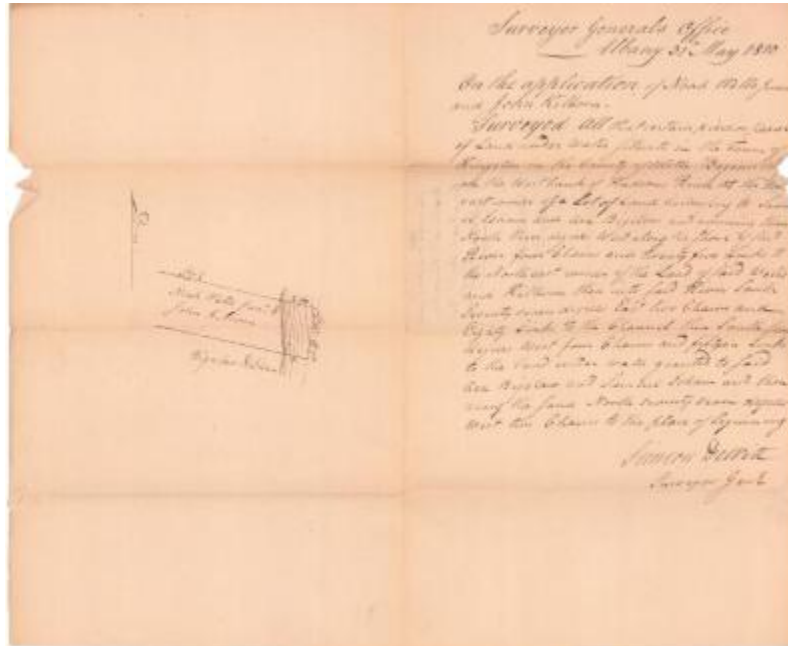 Surveyor Generals Office
Albany 31st May 1810
On the application of Noah Wells Junr
and John Kilborn.
Surveyed all that certain piece
of Land under water situate in the Town of
Kingston in the County of Ulster Beginning
on the West bank of Hudsons River at the
east corner of a Lot of Land belonging to
and running thence
North degree West along the shore of said
River four Chains and twenty five Links to
the North east corner of the Land of said Wells
and Kilborn then into said River South
Seventy seven degrees East two Chains and
Eighty Links to the Channel then South four
degrees West four Chains and fifteen Links
to the Land under water granted to said
and then
along the same North seventy seven degrees
West two Chains to the place of beginning
Simeon DeWitt
Surveyor Genl
Noah Wells Junr &
John Kilborn